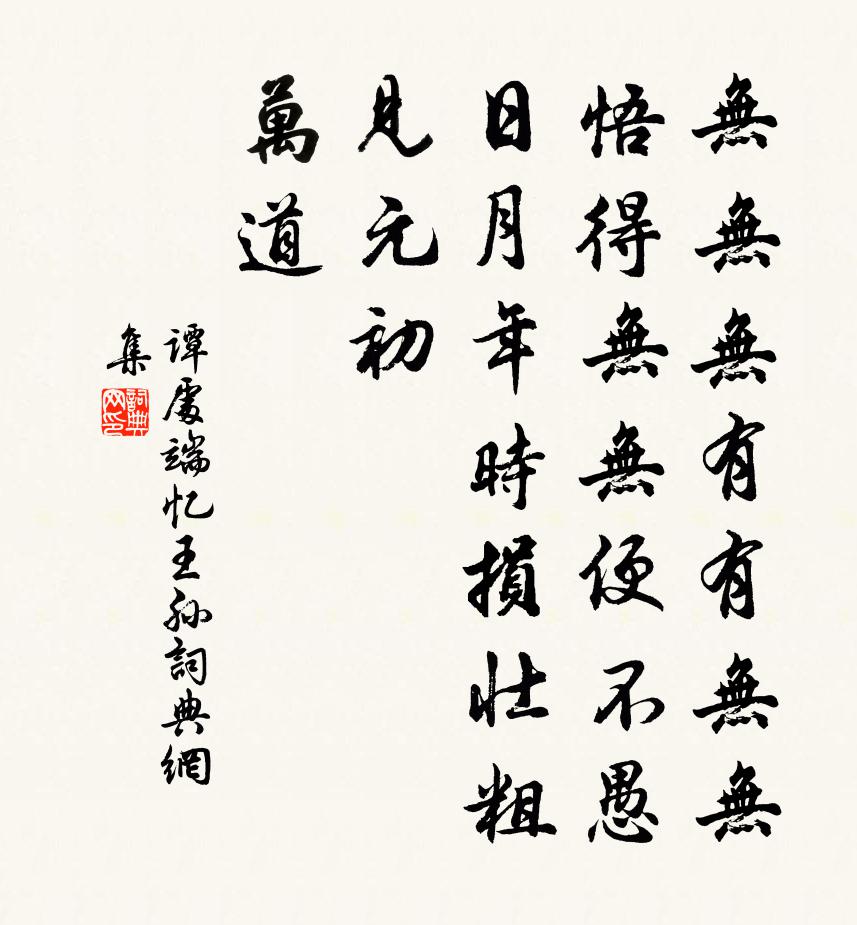 無無無有有無無
悟得無無便不愚
日月年時損壯粗
見元初
萬道
谭處端忆王孙詞典網
集
詞典網印